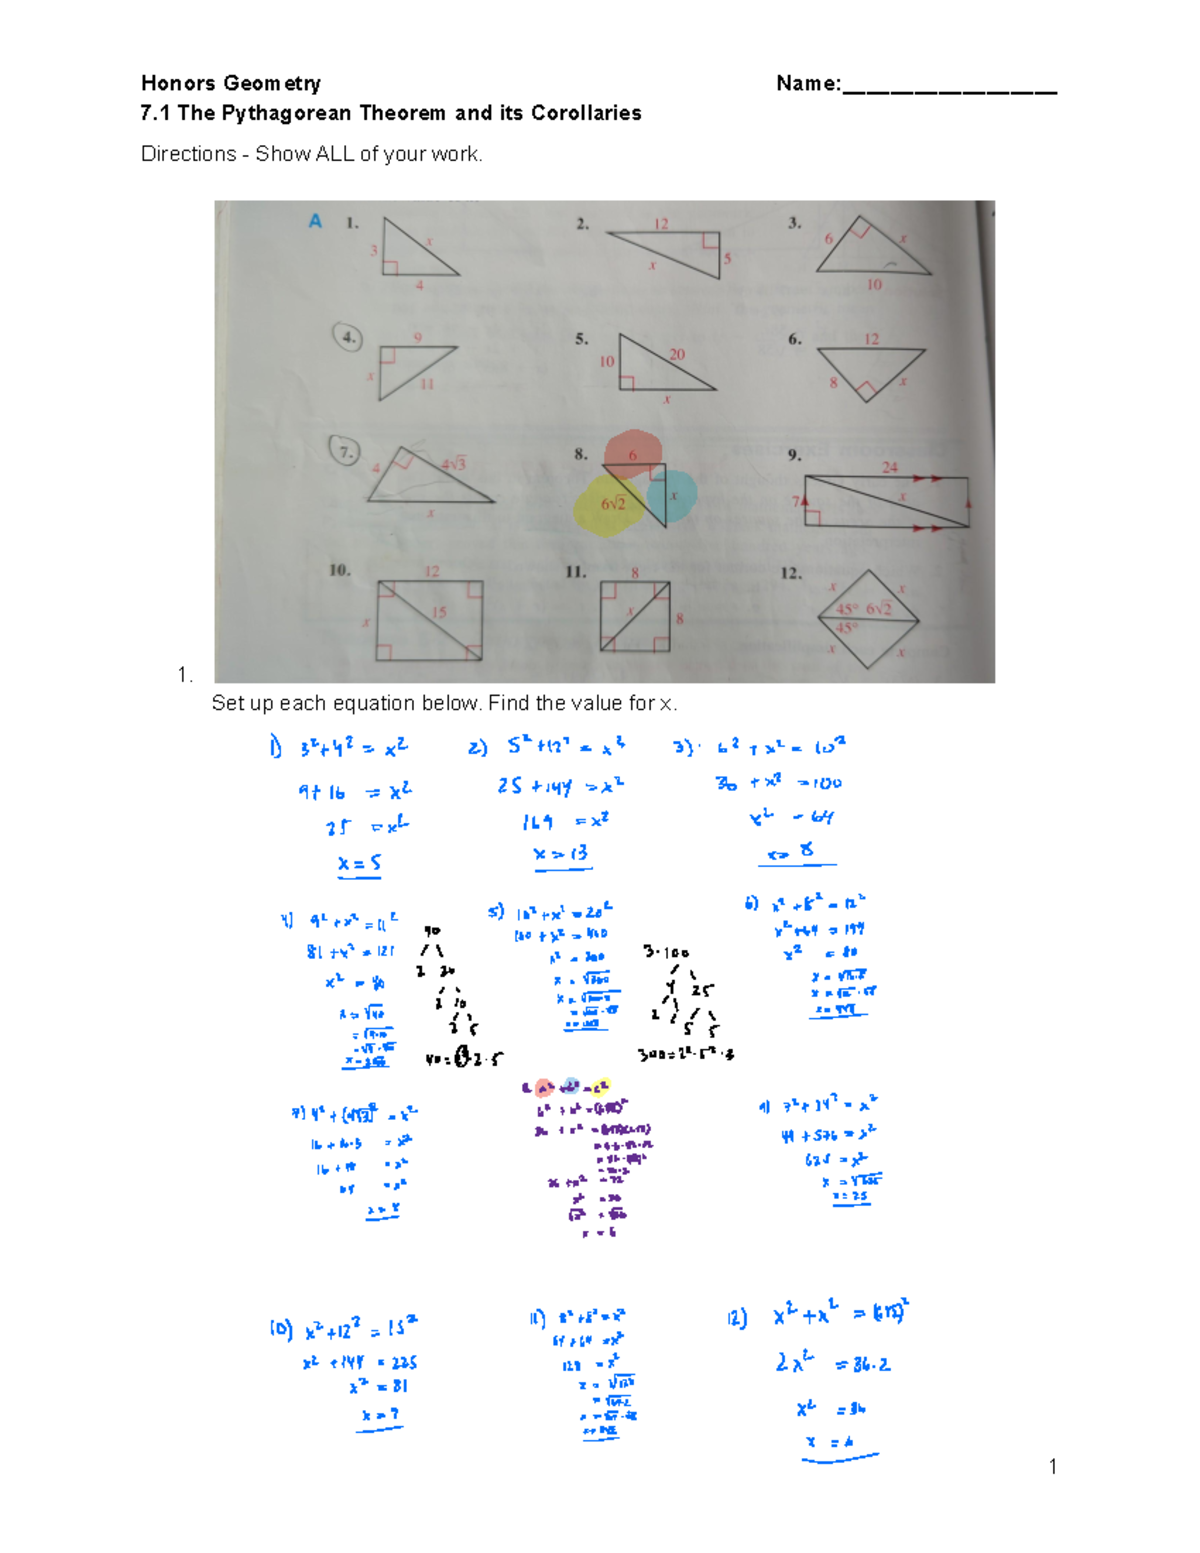 Honors Geometry Name:__________________
7.1 The Pythagorean Theorem and its Corollaries
Directions - Show ALL of your work.
A 1. 3 x 4
2. 12 5 x
3. 6 x 10
4. 9 x 11
5. 10 20 x
6. 12 8 x
7. 4 4√3 x
8. 6 6√2 x
9. 24 7 x
10. 12 15 x
11. 8 x 8
12. x x 45° 6√2 45° x x
1.
Set up each equation below. Find the value for x.
1) 3² + 4² = x²
9 + 16 = x²
25 = x²
x = 5
2) 5² + 12² = x²
25 + 144 = x²
169 = x²
x = 13
3) 6² + x² = 10²
36 + x² = 100
x² = 64
x = 8
4) 9² + x² = 11²
81 + x² = 121
x² = 40
x = √40
40
2 20
2 10
2 5
5) 10² + x² = 20²
100 + x² = 400
x² = 300
x = √300
3 · 100
4 25
2 2 5 5
300 = 2² · 5² · 3
6) x² + 8² = 12²
x² + 64 = 144
x² = 80
7) 4² + (4√3)² = x²
16 + 16·3 = x²
16 + 48 = x²
64 = x²
x = 8
8. a² + b² = c²
36 + x² = 72
x² = 36
x = 6
9) 7² + 24² = x²
49 + 576 = x²
625 = x²
x = √625
x = 25
10) x² + 12² = 15²
x² + 144 = 225
x² = 81
x = 9
11) 8² + 8² = x²
64 + 64 = x²
128 = x²
x = √128
12) x² + x² = (6√2)²
2x² = 36·2
x² = 36
x = 6
1